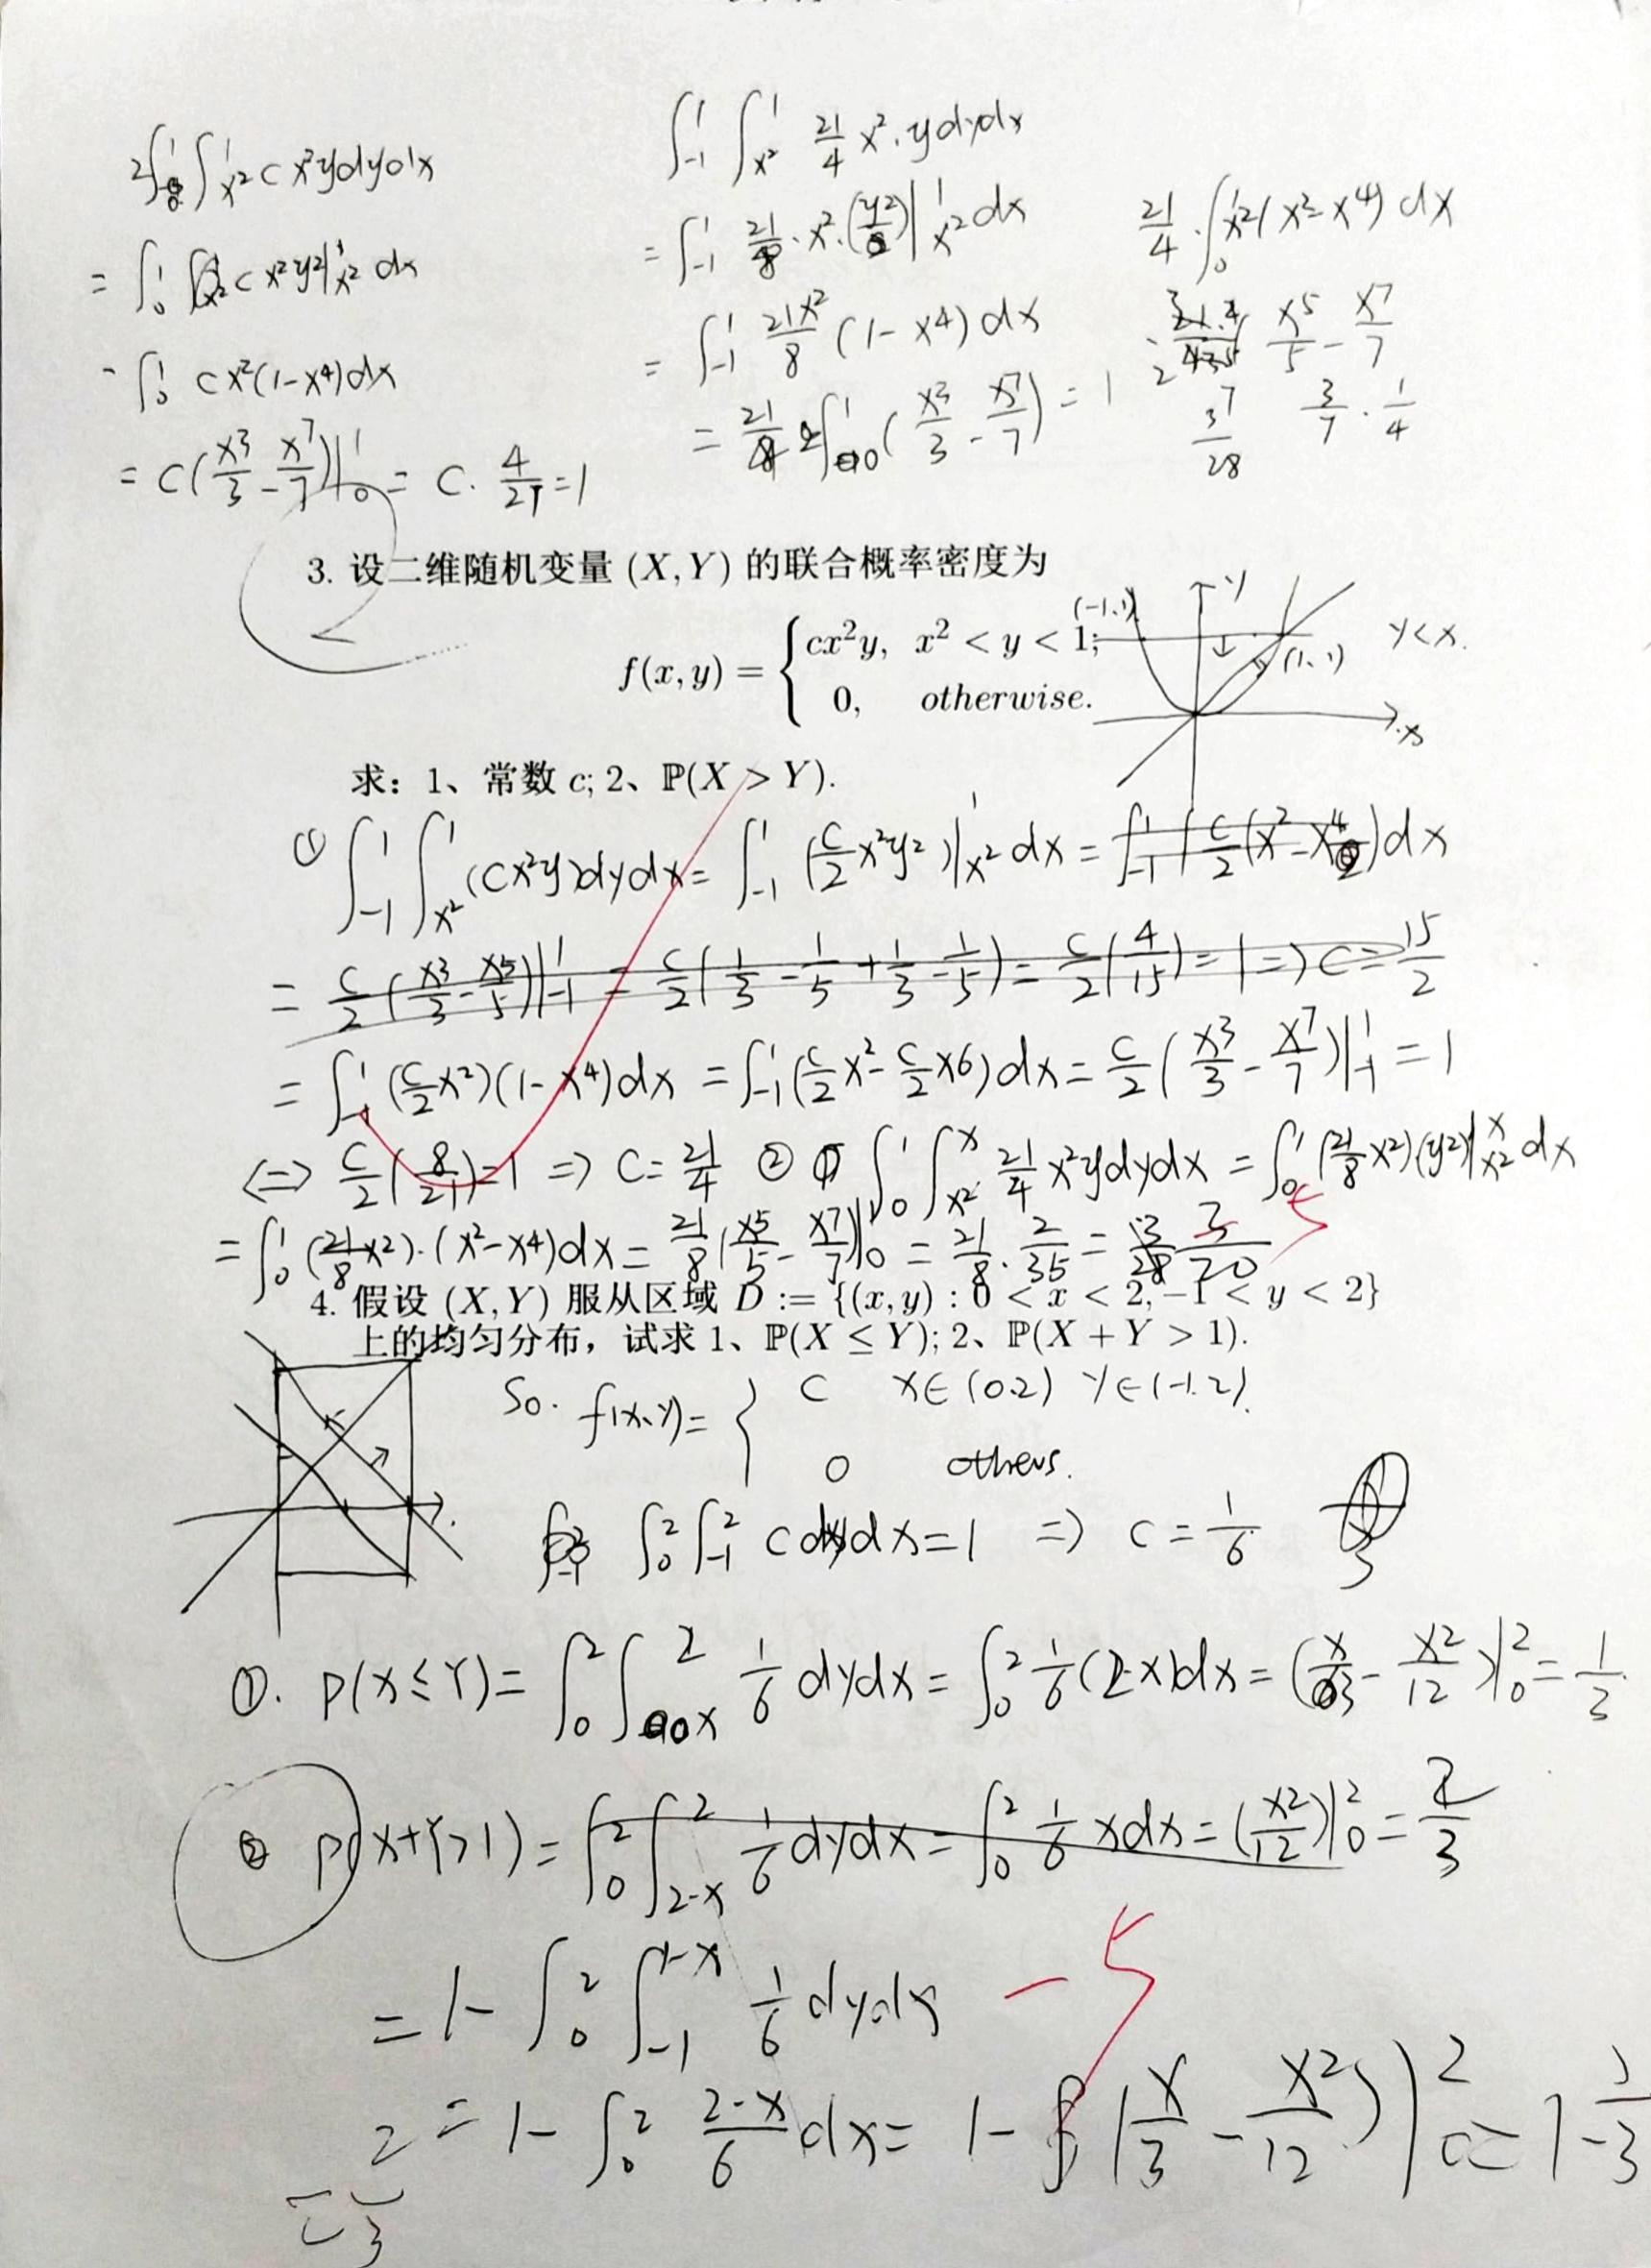 2∫_0^1 ∫_{x^2}^1 c x^2 y dy dx
= ∫_0^1 c x^2 y^2 |_{x^2}^1 dx
= ∫_0^1 c x^2 (1-x^4) dx
= c(x^3/3 - x^7/7)|_0^1 = c · 4/21 = 1
∫_{-1}^1 ∫_{x^2}^1 21/4 x^2 · y dy dx
= ∫_{-1}^1 21/8 · x^2 · (y^2)|_{x^2}^1 dx
= ∫_{-1}^1 21x^2/8 (1-x^4) dx
= 21/4 ∫_0^1 (x^3/3 - x^7/7) = 1
21/4 · ∫_0^1 x^2(x^2-x^4) dx
x^5/5 - x^7/7
3/7 · 1/4
3/28
3. 设二维随机变量 (X, Y) 的联合概率密度为
f(x, y) = { cx^2y, x^2 < y < 1;
0, otherwise.
(-1,1) Y
(1,1) y<x.
x
求: 1、常数 c; 2、ℙ(X > Y).
① ∫_{-1}^1 ∫_{x^2}^1 (cx^2y)dydx = ∫_{-1}^1 (c/2 x^2y^2)|_{x^2}^1 dx = ∫_{-1}^1 c/2 (x^2-x^4)dx
= c/2 (x^3/3 - x^5/5)|_{-1}^1 = c/2 (1/3 - 1/5 + 1/3 - 1/5) = c/2 (4/15) = 1 ⇒ c = 15/2
= ∫_{-1}^1 (c/2 x^2)(1-x^4)dx = ∫_{-1}^1 (c/2 x^2 - c/2 x^6)dx = c/2 (x^3/3 - x^7/7)|_{-1}^1 = 1
⇔ c/2 (8/21) = 1 ⇒ c = 21/4 ② ∫_0^1 ∫_{x^2}^x 21/4 x^2ydydx = ∫_0^1 (21/8 x^2)(y^2)|_{x^2}^x dx
= ∫_0^1 (21/8 x^2)·(x^2-x^4)dx = 21/8 (x^5/5 - x^7/7)|_0^1 = 21/8 · 2/35 = 3/20
4. 假设 (X, Y) 服从区域 D := {(x, y) : 0 < x < 2, -1 < y < 2}
上的均匀分布，试求 1、ℙ(X ≤ Y); 2、ℙ(X + Y > 1).
So. f(x,y) = { c x∈(0.2) y∈(-1.2).
0 others.
∫_0^2 ∫_{-1}^2 c dydx = 1 ⇒ c = 1/6
①. P(X≤Y) = ∫_0^2 ∫_x^2 1/6 dydx = ∫_0^2 1/6 (2-x)dx = (x/3 - x^2/12)|_0^2 = 1/3
② P(X+Y>1) = ∫_0^2 ∫_{2-x}^2 1/6 dydx = ∫_0^2 1/6 xdx = (x^2/12)|_0^2 = 2/3
= 1 - ∫_0^2 ∫_{-1}^{1-x} 1/6 dydx
-5
= 1 - ∫_0^2 (2-x)/6 dx = 1 - (x/3 - x^2/12)|_0^2 = 1 - 1/3
= 2/3